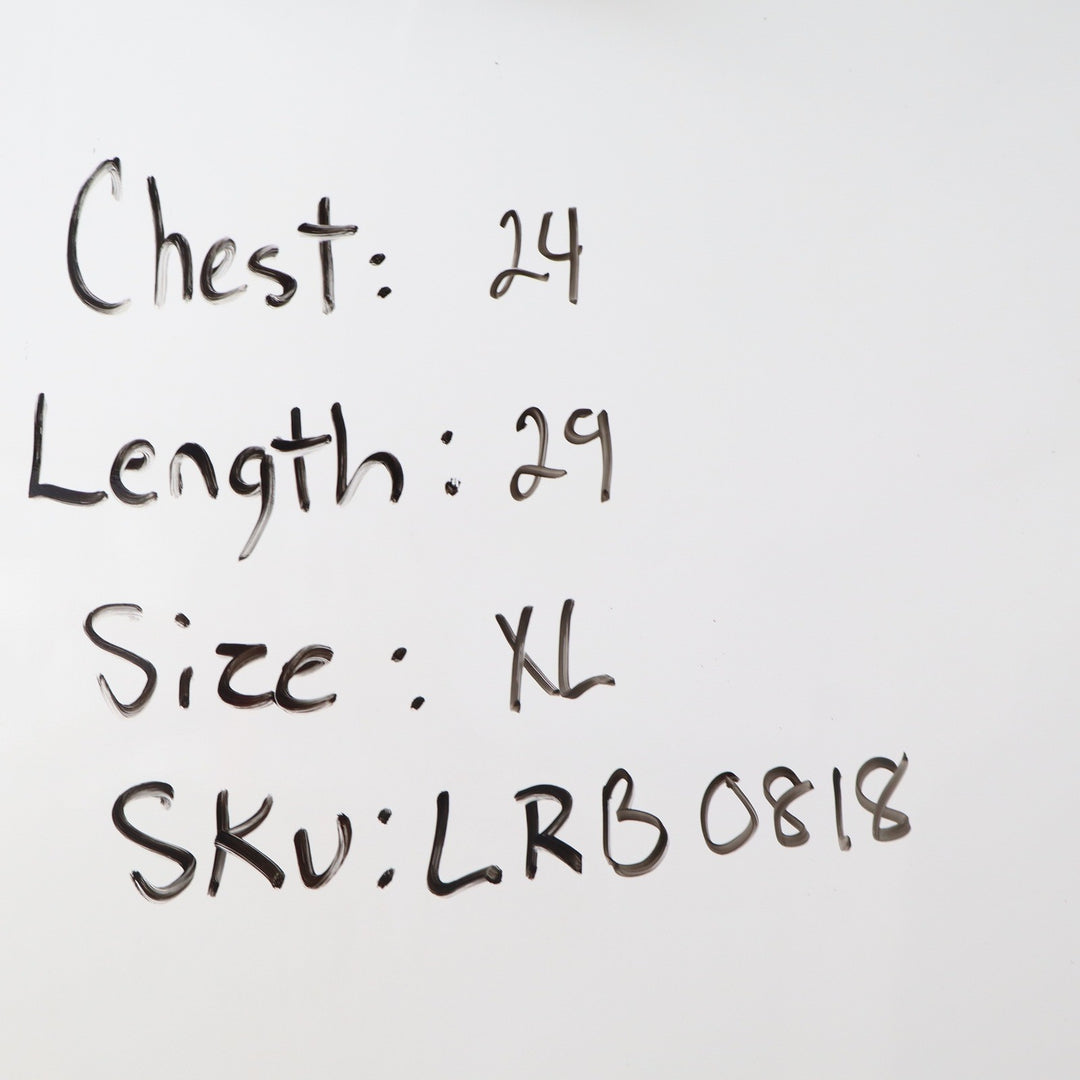 Chest: 24
Length: 29
Size: XL
SKU: LRB 0818